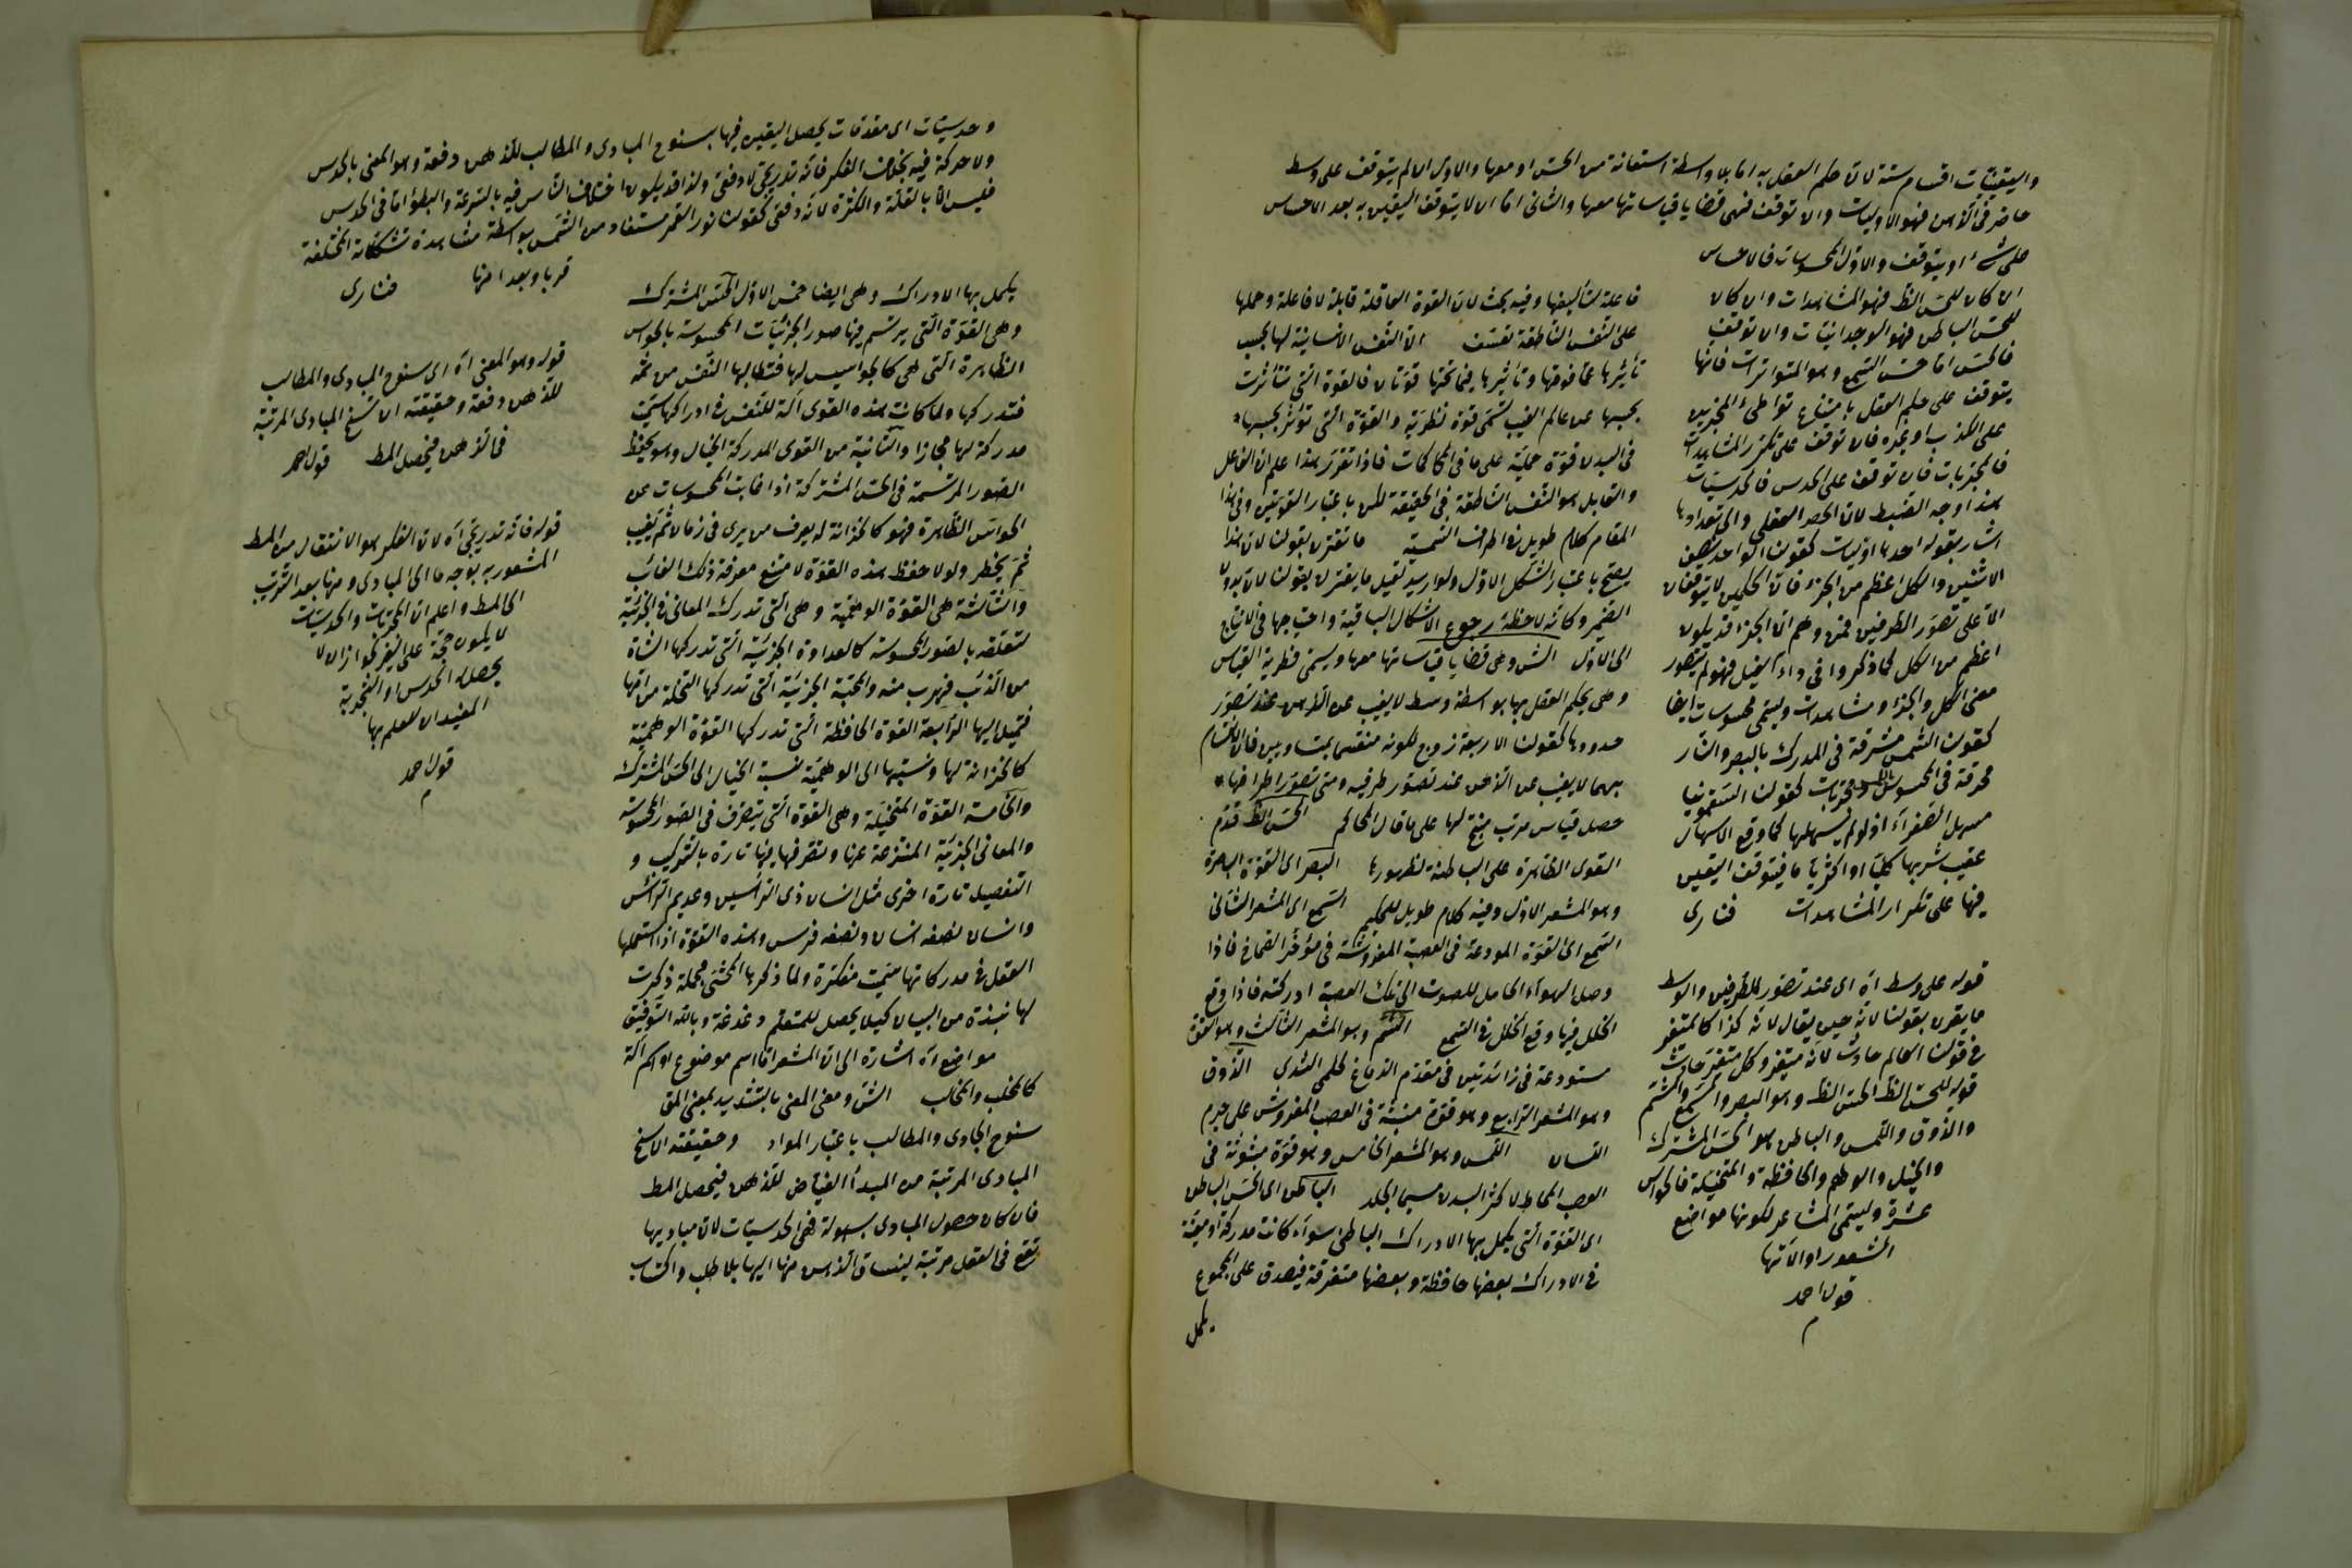 واليقينيات اقسام ستة لان حكم العقل به اما بلا واسطة استعانة من الحس او معها والاول ان لم يتوقف على وسط
حاضر في الذهن فهو الاوليات وان توقف فهى قضايا قياساتها معها والثانى اما ان لا يتوقف اليقين به بعد الاحساس
على شئ او يتوقف والاول المحسوسات فالاحساس
ان كان للحس الظ فهو المشاهدات وان كان
للحس الباطن فهو الوجدانيات وان توقف
فالحس اما حس السمع وهو المتواترات فانها
يتوقف على حكم العقل بامتناع تواطئ المخبرين
على الكذب او غيره فان توقف على تكرر المشاهدات
فالمجربات فان توقف على الحدس فالحدسيات
هذا وجه الضبط لان الحصر العقلى والى تعدادها
اشار بقوله احدها اوليات كقولنا الواحد نصف
الاثنين والكل اعظم من الجزء فان الحكمين لا يتوقفان
الا على تصور الطرفين فمن وهم ان الجزء قد يكون
اعظم من الكل كما ذكروا فى داء الفيل فهو لم يتصور
معنى الكل والجزء ومشاهدات وليسمى محسوسات ايضا
كقولنا الشمس مشرقة فى المدرك بالبصر والنار
محرقة فى المحسوس باللمس ومجربات كقولنا السقمونيا
مسهل الصفراء اذ لو لم يسهلها لما وقع الاسهال
عقيب شربها كليا او اكثريا ما فيتوقف اليقين
فيها على تكرار المشاهدات فنارى
قوله على وسط اه اى عند تصور الطرفين والوسط
ما يقرن بقولنا لانه حين يقال لانه كذا كالمتغير
فى قولنا العالم حادث لانه متغير وكل متغير حادث
قوله للحس الظ الحس الظ وهو البصر والسمع والشم
والذوق واللمس والباطن هو الحس المشترك
والخيال والوهم والحافظة والمتخيلة فالحواس
عشرة وليسمى المشاعر لكونها مواضع
الشعور او آلاتها
قول احمد
فاعلة لتأليفها وفيه بحث لان القوة العاقلة قابلة لا فاعلة وحملها
على النفس الناطقة تعسف الا النفس الانسانية لها بحسب
تأثرها عما فوقها وتأثيرها فيما تحتها قوتان فالقوة التى تتأثرت
بحسبها عن عالم الغيب تسمى قوة نظرية والقوة التى تؤثر بحسبها
فى البدن قوة عملية على ما فى المحاكمات فاذا تقرر هذا علم ان الفاعل
والقابل هو النفس الناطقة فى الحقيقة لكن باعتبار القوتين وفى هذا
المقام كلام طويل فى اطراف الشمسية ما تقترن بقولنا لان هذا
يصح باعتبار الشكل الاول ولو اريد تعميل ما يقترن بقولنا لان بدون
الضمير وكانه لاحظ رجوع الاشكال الباقية واحتياجها فى الانتاج
الى الاول الش وهى قضايا قياساتها معها ويسمى فطرية القياس
وهى يحكم العقل بها بواسطة وسط لا يغيب عن الذهن عند تصور
حدودها كقولنا الاربعة زوج لكونه منقسما بمتساويين فان الانقسام
بهما لا يغيب عن الذهن عند تصور طرفيه ومتى تصور اطرافها
حصل قياس مرتب منتج لها على ما قال المحاكم الحس الظ قدم
القوى الظاهرة على الباطنة لظهورها البصر اى القوة الباصرة
وهو المشعر الاول وفيه كلام طويل للحكيم السمع اى المشعر الثانى
السمع اى القوة المودعة فى العصبة المفروشة فى مؤخر الصماخ فاذا
وصل الهواء الحامل للصوت الى تلك العصبة ادركته فاذا وقع
الخلل فيها وقع الخلل فى السمع الشم وهو المشعر الثالث وهو القوة
مستودعة فى زائدتين فى مقدم الدماغ كحلمتى الثدى الذوق
وهو المشعر الرابع وهو قوة منبثة فى العصب المفروش على جرم
اللسان اللمس وهو المشعر الخامس وهو قوة مبثوثة فى
العصب المخاط لاكثر البدن لاسيما الجلد الباطن اى الحس الباطن
اى القوة التى يكمل بها الادراك الباطنى سواء كانت مدركة او معينة
فى الادراك بعضها حافظة وبعضها متفرقة فيصدق على المجموع
يكمل
وحدسيات اى مقدمات يحصل اليقين فيها بسنوح المبادى والمطالب للذهن دفعة وهو المعنى بالحدس
ولا حركة فيه بخلاف الفكر فانه تدريجى لا دفعى ولذا قد يكون اختلاف الناس فيه بالسرعة والبطؤ اما فى الحدس
فليس الا بالقلة والكثرة لانه دفعى كقولنا نور القمر مستفاد من الشمس بواسطة مشاهدة تشكلاته المختلفة
قربا وبعدا منها فنارى
يكمل بها الادراك وهى ايضا خمس الاول الحس المشترك
وهى القوة التى يرتسم فيها صور الجزئيات المحسوسة بالحواس
الظاهرة التى هى كالجواسيس لها فتطالبها النفس من ثمه
فتدركها ولما كانت هذه القوى آلة للنفس فى ادراكها سميت
مدركة لها مجازا والثانية من القوى المدركة الخيال وهو يحفظ
الصور المرتسمة فى الحس المشتركة اذا غابت المحسوسات عن
الحواس الظاهرة فهو كالخزانة له يعرف من يرى فى زمان ثم يغيب
ثم يحضر ولولا حفظ هذه القوة لامتنع معرفة ذلك الغائب
والثالثة هى القوة الوهمية وهى التى تدرك المعانى الجزئية
المتعلقة بالصور المحسوسة كالعداوة الجزئية التى تدركها الشاة
من الذئب فيهرب منه والمحبة الجزئية التى تدركها السخلة من امها
فتميل اليها الرابعة القوة الحافظة التى تدركها القوة الوهمية
كالخزانة لها ونسبتها الى الوهمية نسبة الخيال الى الحس المشترك
والخامسة القوة المتخيلة وهى القوة التى يتصرف فى الصور المحسوسة
والمعانى الجزئية المنتزعة عنها وتصرفها فيها تارة بالتركيب و
التفصيل تارة اخرى مثل انسان ذى الرأسين وعديم الرأس
وانسان نصفه انسان ونصفه فرس وهذه القوة اذا استعملها
العقل فى مدركاتها سميت مفكرة ولما ذكرها المحشى مجملة ذكرت
لها نبذة من البيان كيلا يحصل للمتعلم دغدغة وبالله التوفيق
مواضع اه اشارة الى ان المشعر اما اسم موضوع او اسم آلة
كالمخلب والمخالب الش ومعنى المعنى بالتشديد بمعنى المق
سنوح المبادى والمطالب باعتبار المواد وحقيقته ان سنح
المبادى المرتبة من المبدأ الفياض للذهن فيحصل المط
فان كان حصول المبادى بسهولة فهى الحدسيات لان مباديها
تقع فى العقل مرتبة فينساق الذهن منها اليها بلا طلب واكتساب
قوله وهو المعنى اه اى سنوح المبادى والمطالب
للذهن دفعة وحقيقته ان تسنح المبادى المرتبة
فى الذهن فيحصل المط قول احمد
قوله فانه تدريجى اه لان الفكر هو الانتقال من المط
المشعور به بوجه ما الى المبادى ومنها بعد الترتب
الى المط واعلم ان المجربات والحدسيات
لا يكون حجة على الغير لجواز ان لا
يحصل له الحدس او التجربة
المفيدان للعلم بها
قول احمد